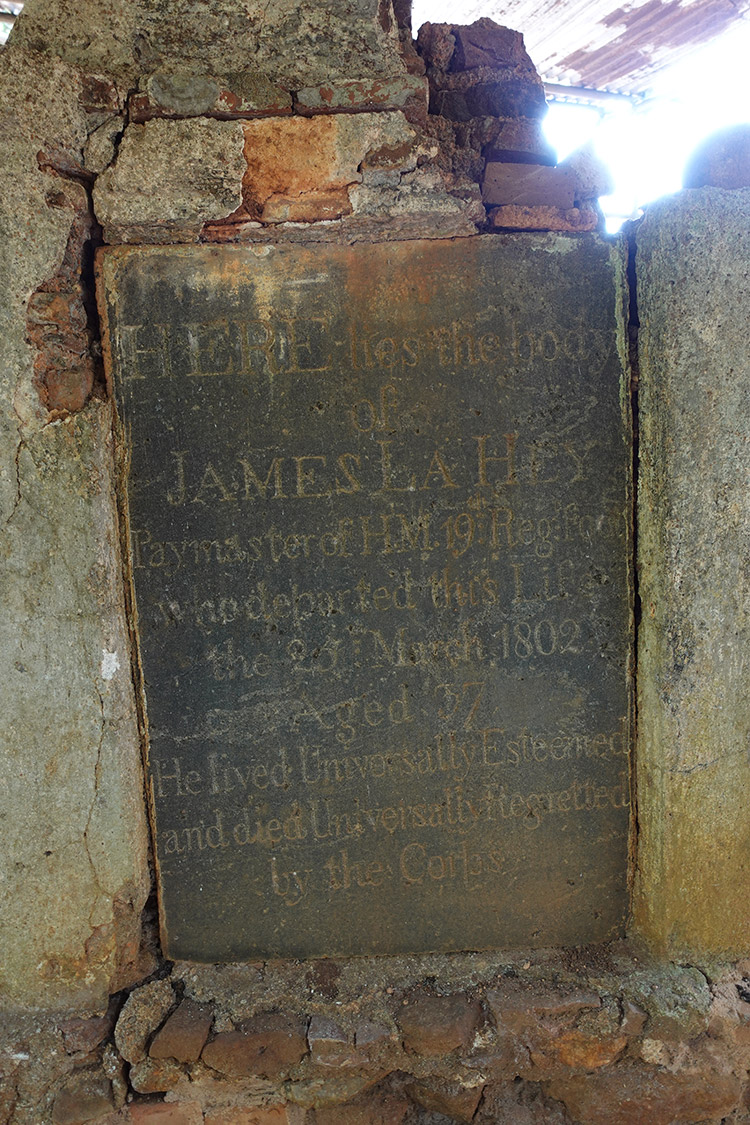 HERE lies the body
of
JAMES LA HEY
Paymaster of H.M. 19t Reg. Foot
who departed this Life
the March 1802
Aged 37
He lived Universally Esteemed
and died Universally Regretted
by the Corps